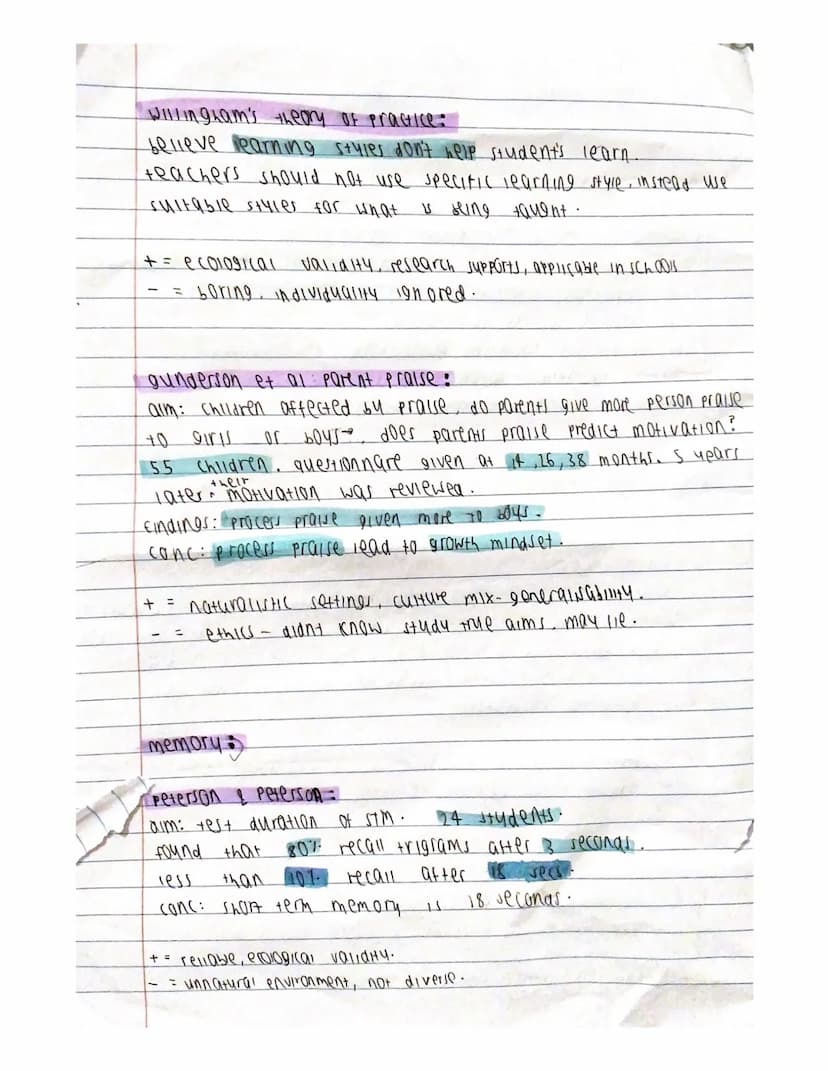 Willingham's theory of Practice:
believe learning styles don't help student's learn.
teachers should not use specific learning style, instead use
suitable styles for what is being taught.
+ = ecological validity, research supports, applicable in schools
- = boring, individuality ignored.
gunderson et al: parent praise:
aim: children affected by praise, do parents give more person praise
to girls or boys, does parents praise predict motivation?
55 children. questionnare given at 14, 26, 38 months. 5 years
later their motivation was reviewed.
findings: process praise given more to boys.
conc: process praise lead to growth mindset.
+ = naturalistic settings, culture mix - generalisability.
- = ethics - didnt know study true aims, may lie.
memory:)
Peterson & Peterson:
aim: test duration of STM. 24 students.
found that 80% recall trigrams after 3 seconds.
less than 10% recall after 18 secs.
conc: short term memory is 18 seconds.
+ = reliable, ecological validity.
- = unnatural environment, not diverse.